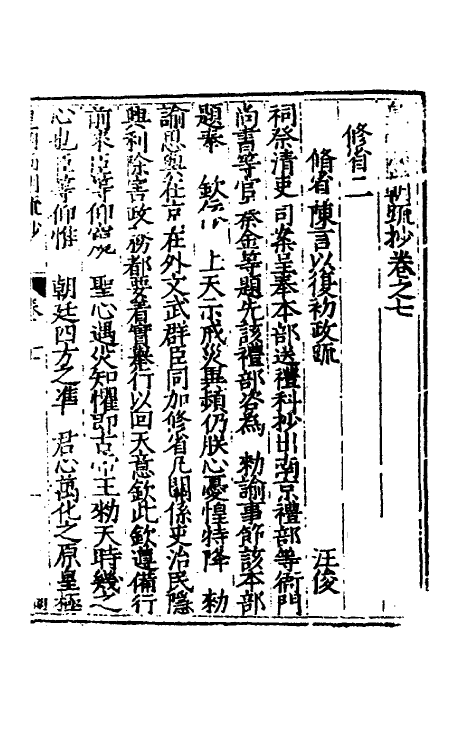 朝疏抄卷之七
修省二
脩省陳言以復初政疏 汪俊
祠祭清吏司案呈奉本部送禮科抄出南京禮部等衙門
尚書等官 秦金等題先該禮部咨為 勑諭事節該本部
題奉 欽依 上天示戒災異頻仍朕心憂惶特降 勑
諭思與在京在外文武群臣同加修省凡關係吏治民隱
興利除害政務都要着實舉行以回天意欽此欽遵備行
前來臣等仰 聖心遇災知懼即古帝王勑天時幾之
心也臣等仰惟 朝廷四方之準 君心萬化之原皇極
疏抄 卷 七